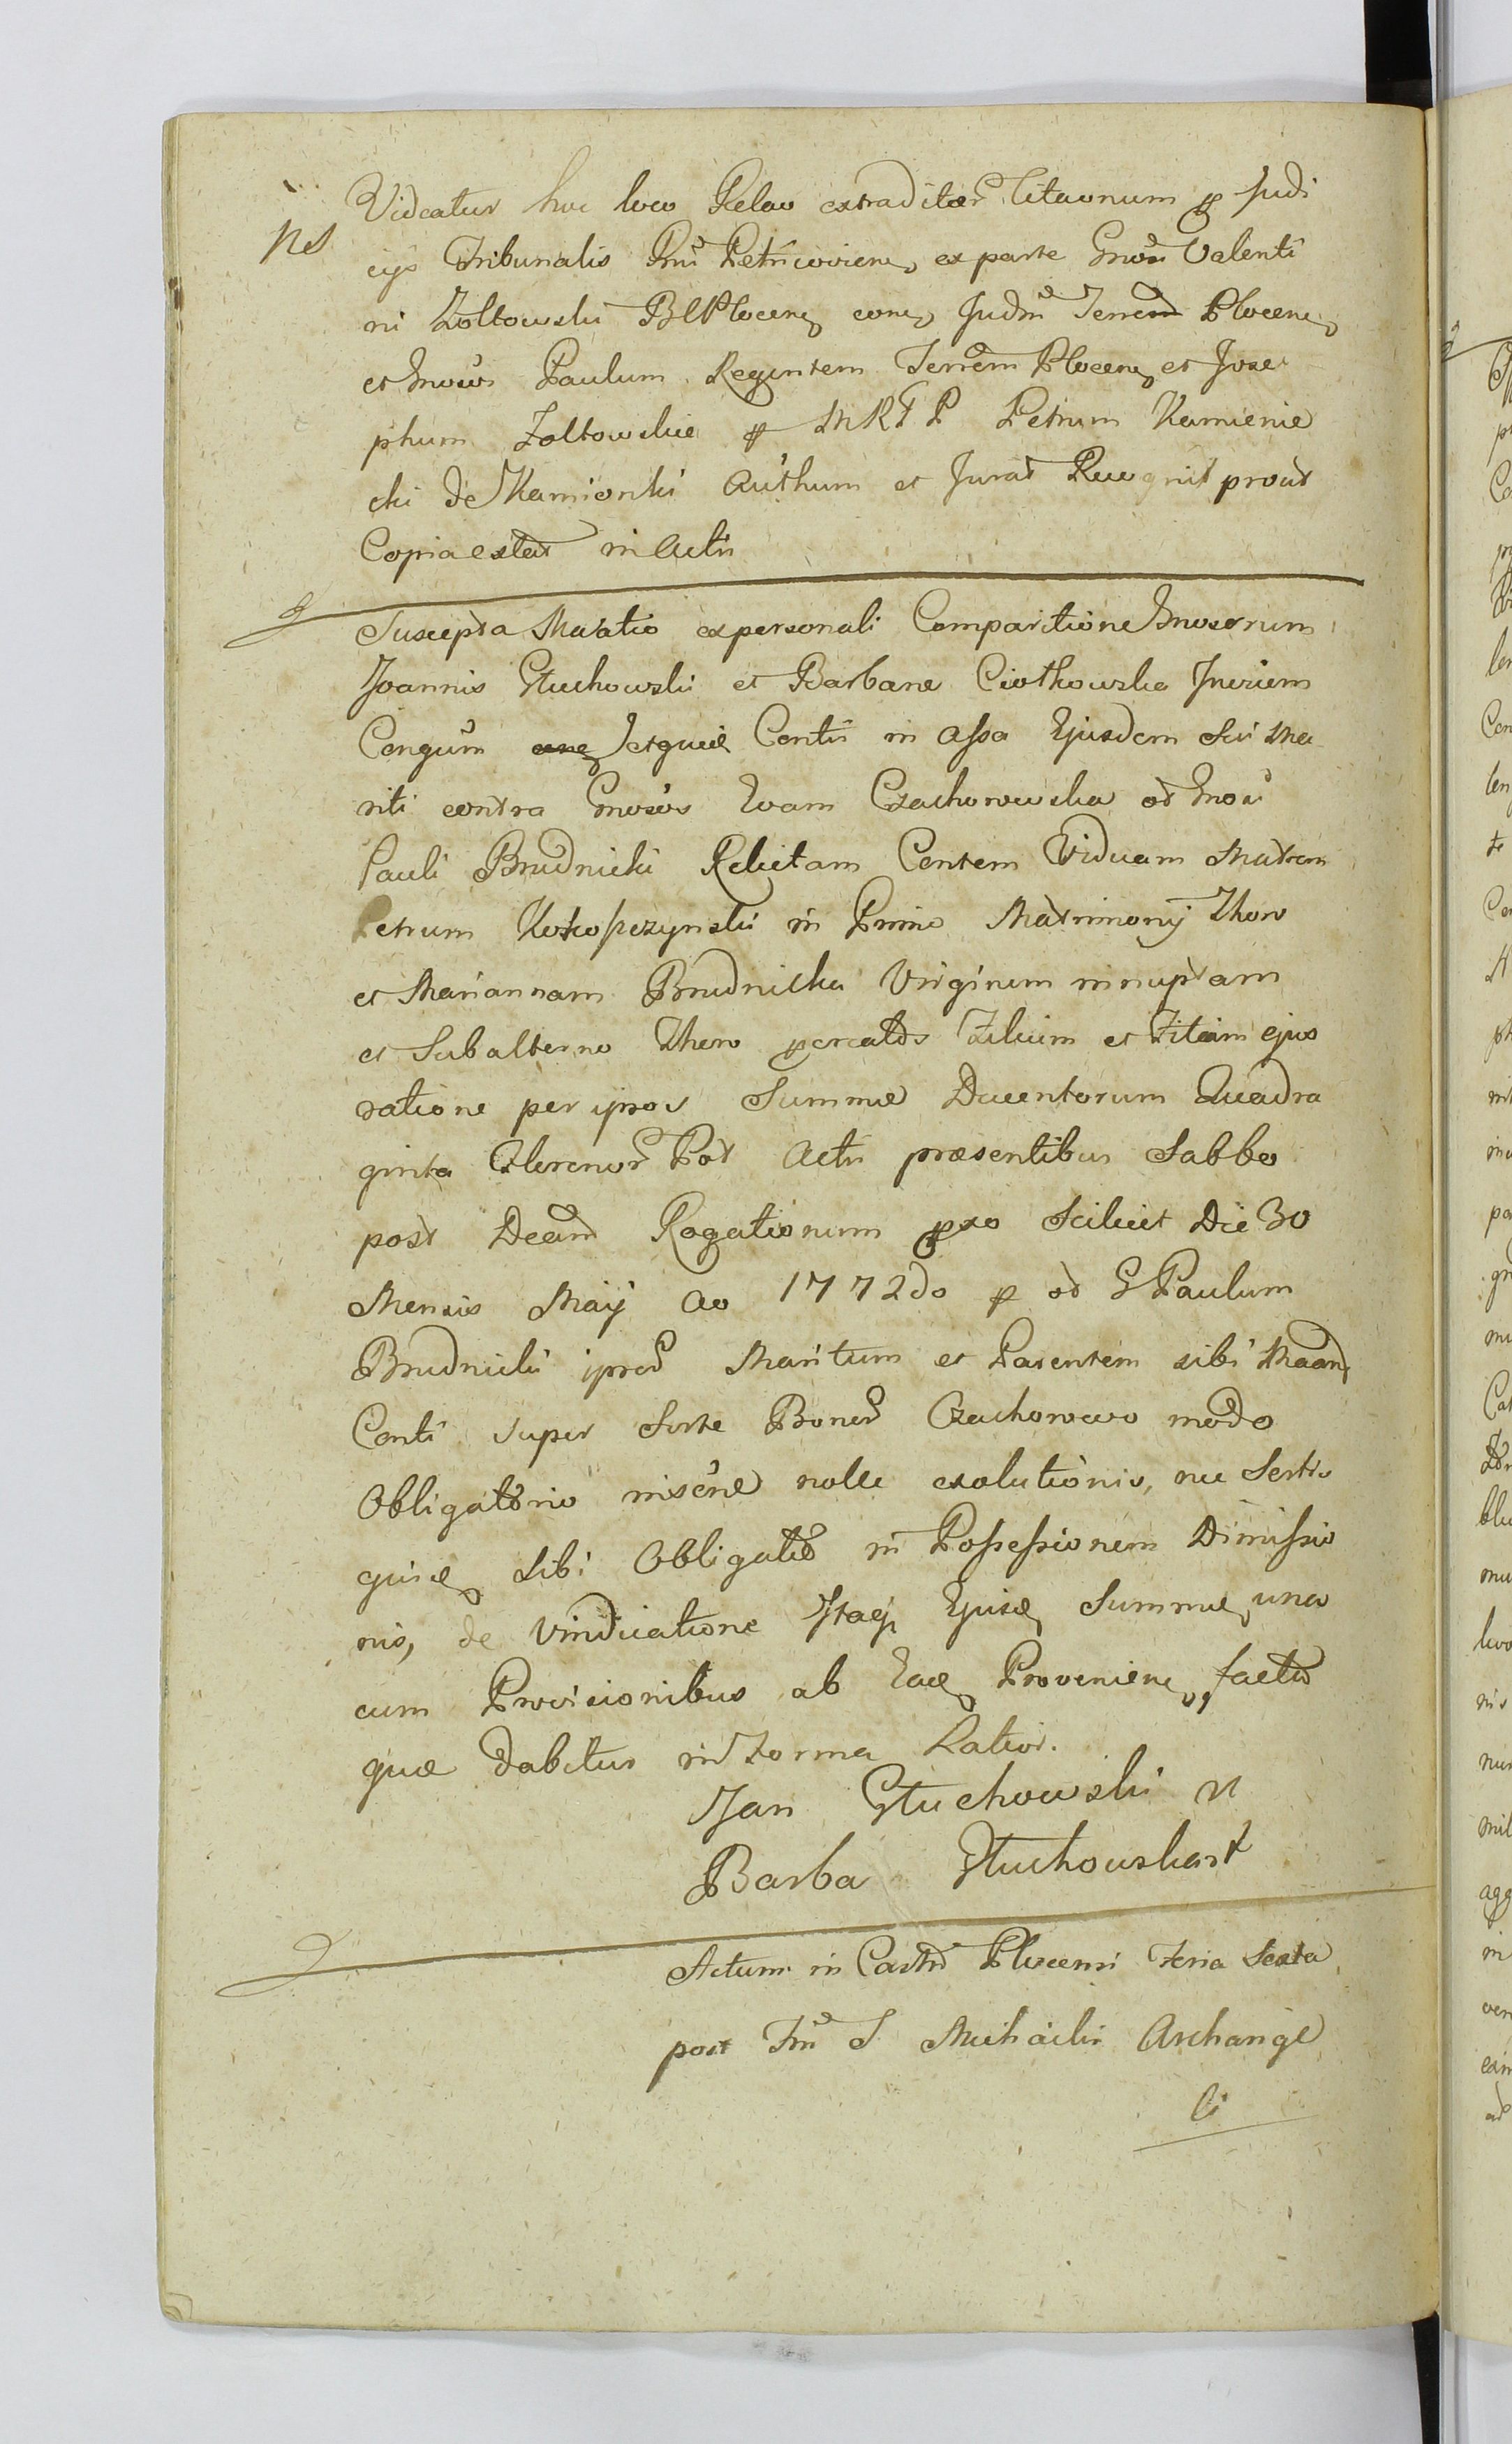 Videatur hoc loco Relao extraditar Citaonum p Judi
ns
cijs Tribunalis Rni Petricoviens ex parte Gnosi Valenti
ni Zołtowski BPłocens cons Judm Terrem Płocens
et Gnosos Paulum Regentem Terrem Płocens et Jose
phum Zołtowskie p MRGP Petrum Kamienie
cki de Kamionki Authum et Jurat Recognit prout
Copia extat in Actis
Suscepta Maatio ex personali Comparitione Gnosorum
Joannis Głuchowski et Barbara Ciołkowska Invicem
Congum Jetque Contis in assa Ejusdem sui Ma
riti contra Gnosos Evam Czachorowska od Gnosi
Pauli Brudnicki Relictam Contem Viduam Matrem
Petrum in Primo Matrimonij Thoro
et Mariannam Brudnicka Virginem innuptam
et Subalterno Thoro pcreatos Filium et Filiam ejus
ratione per ipsos Summa Ducentorum Quadra
ginta Florenor Pol Actis præsentibus Sabbo
post Deam Rogationum pxo Scilicet Die 30
Mensis Maij Ao 1772do p od G Paulum
Brudnicki ipsor Maritum et Parentem sibi Maand
Conti super Sorte Bonor Czachorowo modo
Obligatorio inscrne nolle exolutionis, nec Sortis
quise sibi Obligate in Possessionem Dimissio
nis, de Vindicatione Itaq Ejusd Summa, una
cum Provisionibus ab Ead Proveniens, facta
quæ dabitur in Forma Latior.
Jan Głuchowski
Barba Głuchowska
Actum in Castro Płocensi Feria Sexta
post Fm S Michaelis Archange
li